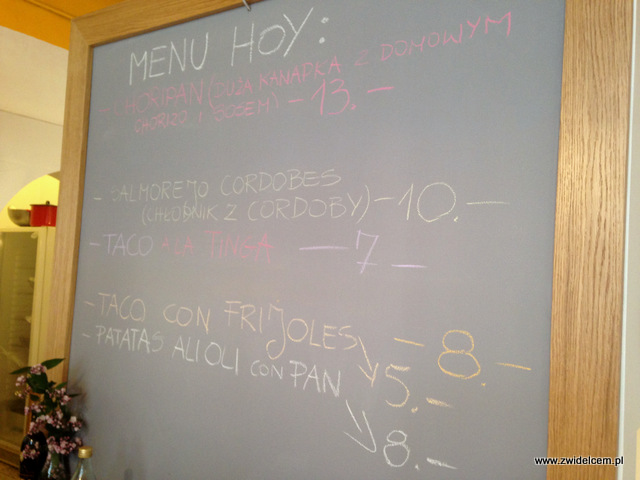 MENU HOY:
- CHORIPAN (DUŻA KANAPKA Z DOMOWYM
CHORIZO I SOSEM) - 13.-
- SALMOREJO CORDOBES
(CHŁODNIK Z CORDOBY) - 10.-
- TACO A LA TINGA - 7 -
- TACO CON FRIJOLES - 8.-
- PATATAS ALIOLI CON PAN 5.-
8.-
www.zwidelcem.pl